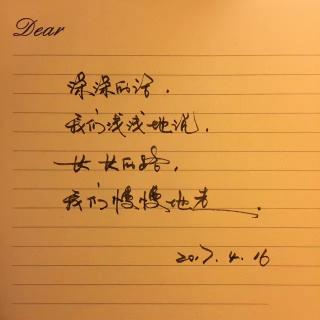 Dear
深深的话.
我们浅浅地说.
长长的路.
我们慢慢地走.
2017.4.16